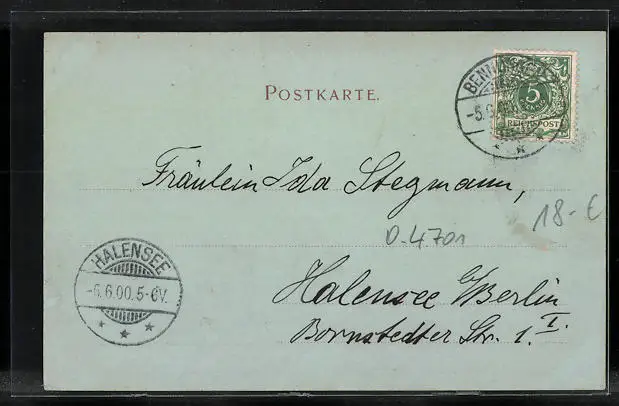 POSTKARTE.
5
REICHSPOST
-5.6
Fräulein Ida Stegmann,
18.-€
D-4701
HALENSEE
-6.6.00.5-6V.
Halensee b/Berlin
Bornstedter Str. 1. I.